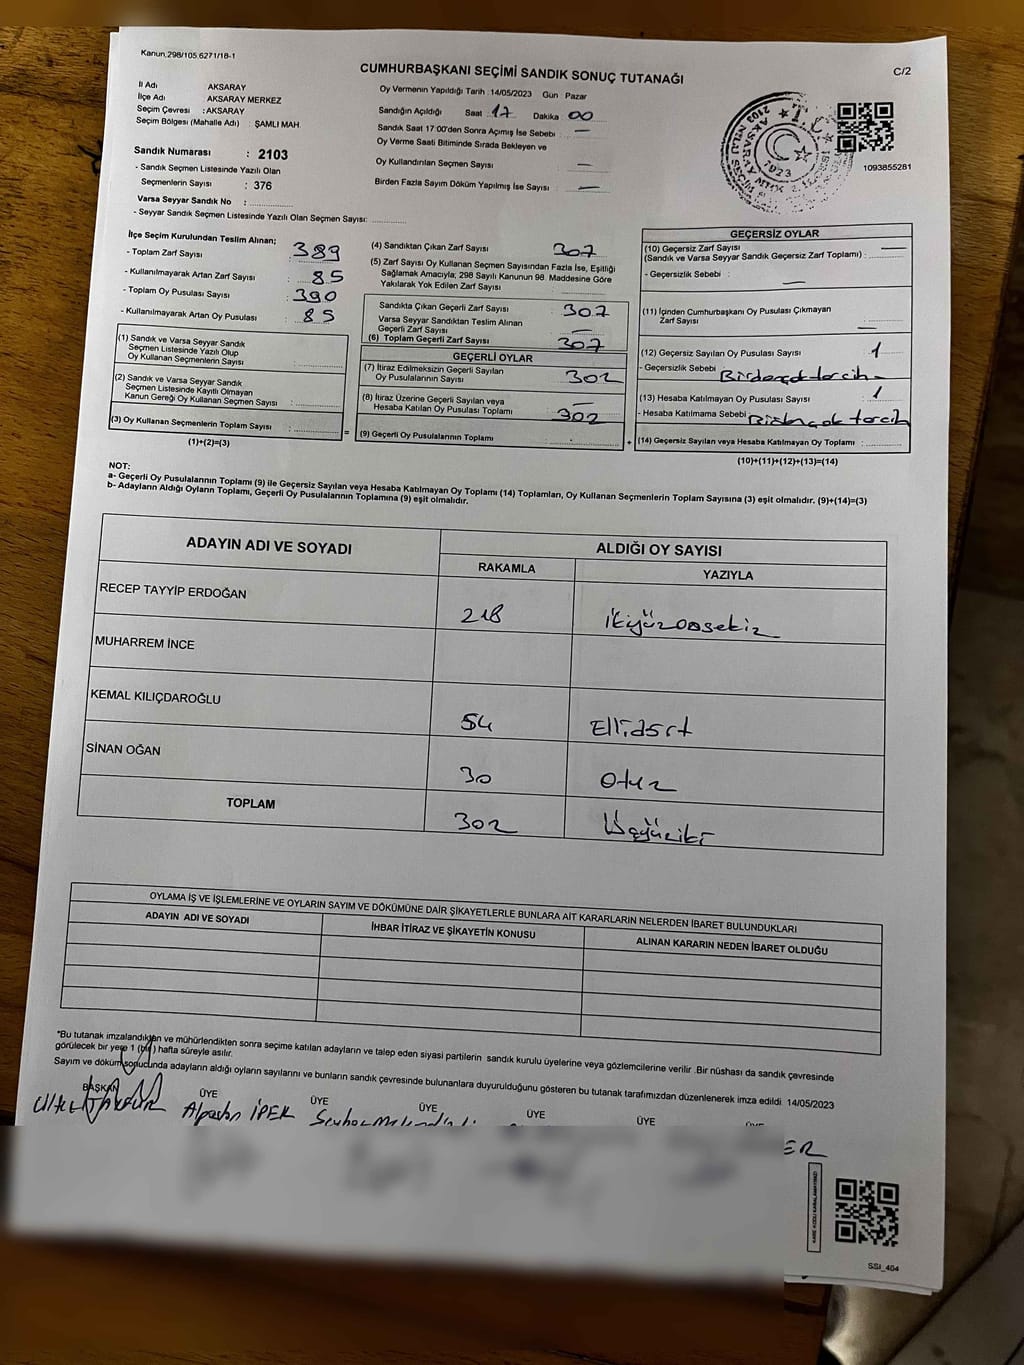 Kanun:298/105,6271/18-1
C/2
CUMHURBAŞKANI SEÇİMİ SANDIK SONUÇ TUTANAĞI
İl Adı AKSARAY
İlçe Adı AKSARAY MERKEZ
Seçim Çevresi : AKSARAY
Seçim Bölgesi (Mahalle Adı) : ŞAMLI MAH.
Oy Vermenin Yapıldığı Tarih : 14/05/2023 Gün Pazar
Sandığın Açıldığı Saat : 17 Dakika 00
Sandık Saat 17:00'den Sonra Açımış İse Sebebi : —
Oy Verme Saati Bitiminde Sırada Bekleyen ve
Oy Kullandırılan Seçmen Sayısı —
Birden Fazla Sayım Döküm Yapılmış İse Sayısı —
1093855281
Sandık Numarası : 2103
- Sandık Seçmen Listesinde Yazılı Olan
Seçmenlerin Sayısı : 376
Varsa Seyyar Sandık No :
- Seyyar Sandık Seçmen Listesinde Yazılı Olan Seçmen Sayısı:
İlçe Seçim Kurulundan Teslim Alınan;
- Toplam Zarf Sayısı : 389
- Kullanılmayarak Artan Zarf Sayısı : 85
- Toplam Oy Pusulası Sayısı : 390
- Kullanılmayarak Artan Oy Pusulası : 85
(1) Sandık ve Varsa Seyyar Sandık
Seçmen Listesinde Yazılı Olup
Oy Kullanan Seçmenlerin Sayısı :
(2) Sandık ve Varsa Seyyar Sandık
Seçmen Listesinde Kayıtlı Olmayan
Kanun Gereği Oy Kullanan Seçmen Sayısı :
(3) Oy Kullanan Seçmenlerin Toplam Sayısı :
(1)+(2)=(3)
=
(4) Sandıktan Çıkan Zarf Sayısı 307
(5) Zarf Sayısı Oy Kullanan Seçmen Sayısından Fazla İse, Eşitliği
Sağlamak Amacıyla; 298 Sayılı Kanunun 98. Maddesine Göre
Yakılarak Yok Edilen Zarf Sayısı :
Sandıkta Çıkan Geçerli Zarf Sayısı : 307
Varsa Seyyar Sandıktan Teslim Alınan
Geçerli Zarf Sayısı : —
(6) Toplam Geçerli Zarf Sayısı : 307
GEÇERLİ OYLAR
(7) İtiraz Edilmeksizin Geçerli Sayılan
Oy Pusulalarının Sayısı : 302
(8) İtiraz Üzerine Geçerli Sayılan veya
Hesaba Katılan Oy Pusulası Toplamı : —
302
(9) Geçerli Oy Pusulalarının Toplamı :
+
GEÇERSİZ OYLAR
(10) Geçersiz Zarf Sayısı
(Sandık ve Varsa Seyyar Sandık Geçersiz Zarf Toplamı) : —
- Geçersizlik Sebebi : —
(11) İçinden Cumhurbaşkanı Oy Pusulası Çıkmayan
Zarf Sayısı : —
(12) Geçersiz Sayılan Oy Pusulası Sayısı : 1
- Geçersizlik Sebebi : Birdençok tercih
(13) Hesaba Katılmayan Oy Pusulası Sayısı : 1
- Hesaba Katılmama Sebebi : Birdençok tercih
(14) Geçersiz Sayılan veya Hesaba Katılmayan Oy Toplamı :
(10)+(11)+(12)+(13)=(14)
NOT:
a- Geçerli Oy Pusulalarının Toplamı (9) ile Geçersiz Sayılan veya Hesaba Katılmayan Oy Toplamı (14) Toplamları, Oy Kullanan Seçmenlerin Toplam Sayısına (3) eşit olmalıdır. (9)+(14)=(3)
b- Adayların Aldığı Oyların Toplamı, Geçerli Oy Pusulalarının Toplamına (9) eşit olmalıdır.
ADAYIN ADI VE SOYADI ALDIĞI OY SAYISI
RAKAMLA YAZIYLA
RECEP TAYYİP ERDOĞAN 218 ikiyüzonsekiz
MUHARREM İNCE
KEMAL KILIÇDAROĞLU 54 Ellidört
SİNAN OĞAN 30 Otuz
TOPLAM 302 Üçyüziki
OYLAMA İŞ VE İŞLEMLERİNE VE OYLARIN SAYIM VE DÖKÜMÜNE DAİR ŞİKAYETLERLE BUNLARA AİT KARARLARIN NELERDEN İBARET BULUNDUKLARI
ADAYIN ADI VE SOYADI İHBAR İTİRAZ VE ŞİKAYETİN KONUSU ALINAN KARARIN NEDEN İBARET OLDUĞU
*Bu tutanak imzalandıktan ve mühürlendikten sonra seçime katılan adayların ve talep eden siyasi partilerin sandık kurulu üyelerine veya gözlemcilerine verilir .Bir nüshası da sandık çevresinde
görülecek bir yere 1 (bir) hafta süreyle asılır.
Sayım ve döküm sonucunda adayların aldığı oyların sayılarını ve bunların sandık çevresinde bulunanlara duyurulduğunu gösteren bu tutanak tarafımızdan düzenlenerek imza edildi 14/05/2023
BAŞKAN ÜYE ÜYE ÜYE ÜYE ÜYE
Alpaslan İPEK
SSI_404